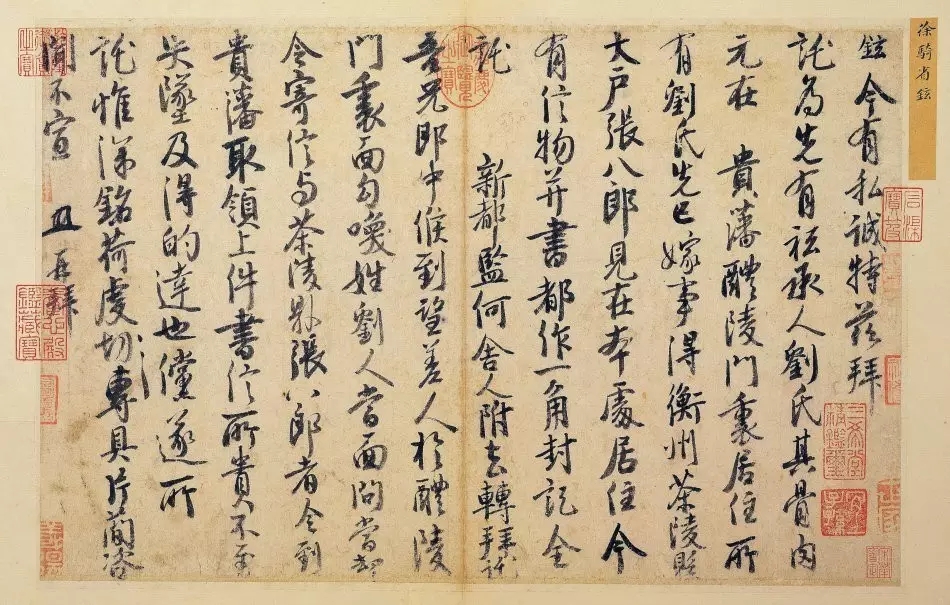 徐騎省鉉
鉉今有私誠特茲拜
託為先有祗承人劉氏其骨肉
元在 貴藩醴陵門裏居住所
有劉氏先已嫁事得衡州茶陵縣
大戶張八郎見在本處居住今
有信物并書都作一角封記全
託 新都監何舍人附去轉拜託
吾兄郎中候到望差人於醴陵
門裏面勾喚姓劉人當面問當却
令寄信与茶陵縣張八郎者令到
貴藩取領上件書信所貴不至
失墜及得的達也儻遂所
託惟深銘荷虔切專具片簡咨
聞不宣 再拜
石渠寶笈
三希堂精鑑璽
宜子孫
養心殿鑑藏寶